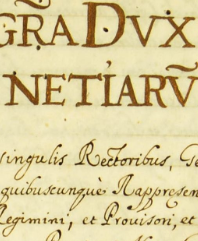 GRA DVX
NETIARV̄
singulis Rectoribus, Ge
quibuscunquè Rappresen
Regimini, et Prouisori, et